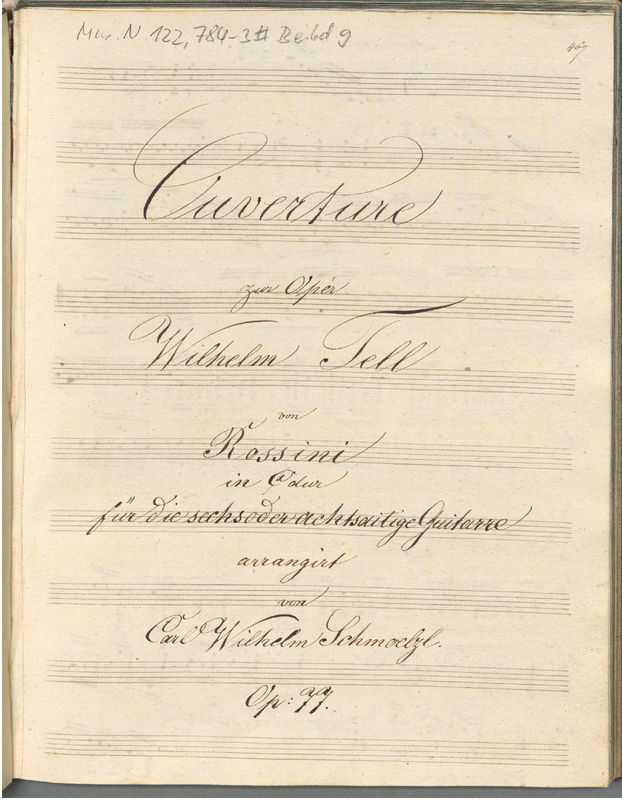 Mus. N 122,784-3# Beibd 9
467
Ouverture
zur Oper
Wilhelm Tell
von
Rossini
in C dur
für die sechs oder achtsaitige Guitarre
arrangirt
von
Carl Wilhelm Schmoelzl.
Op: 77.